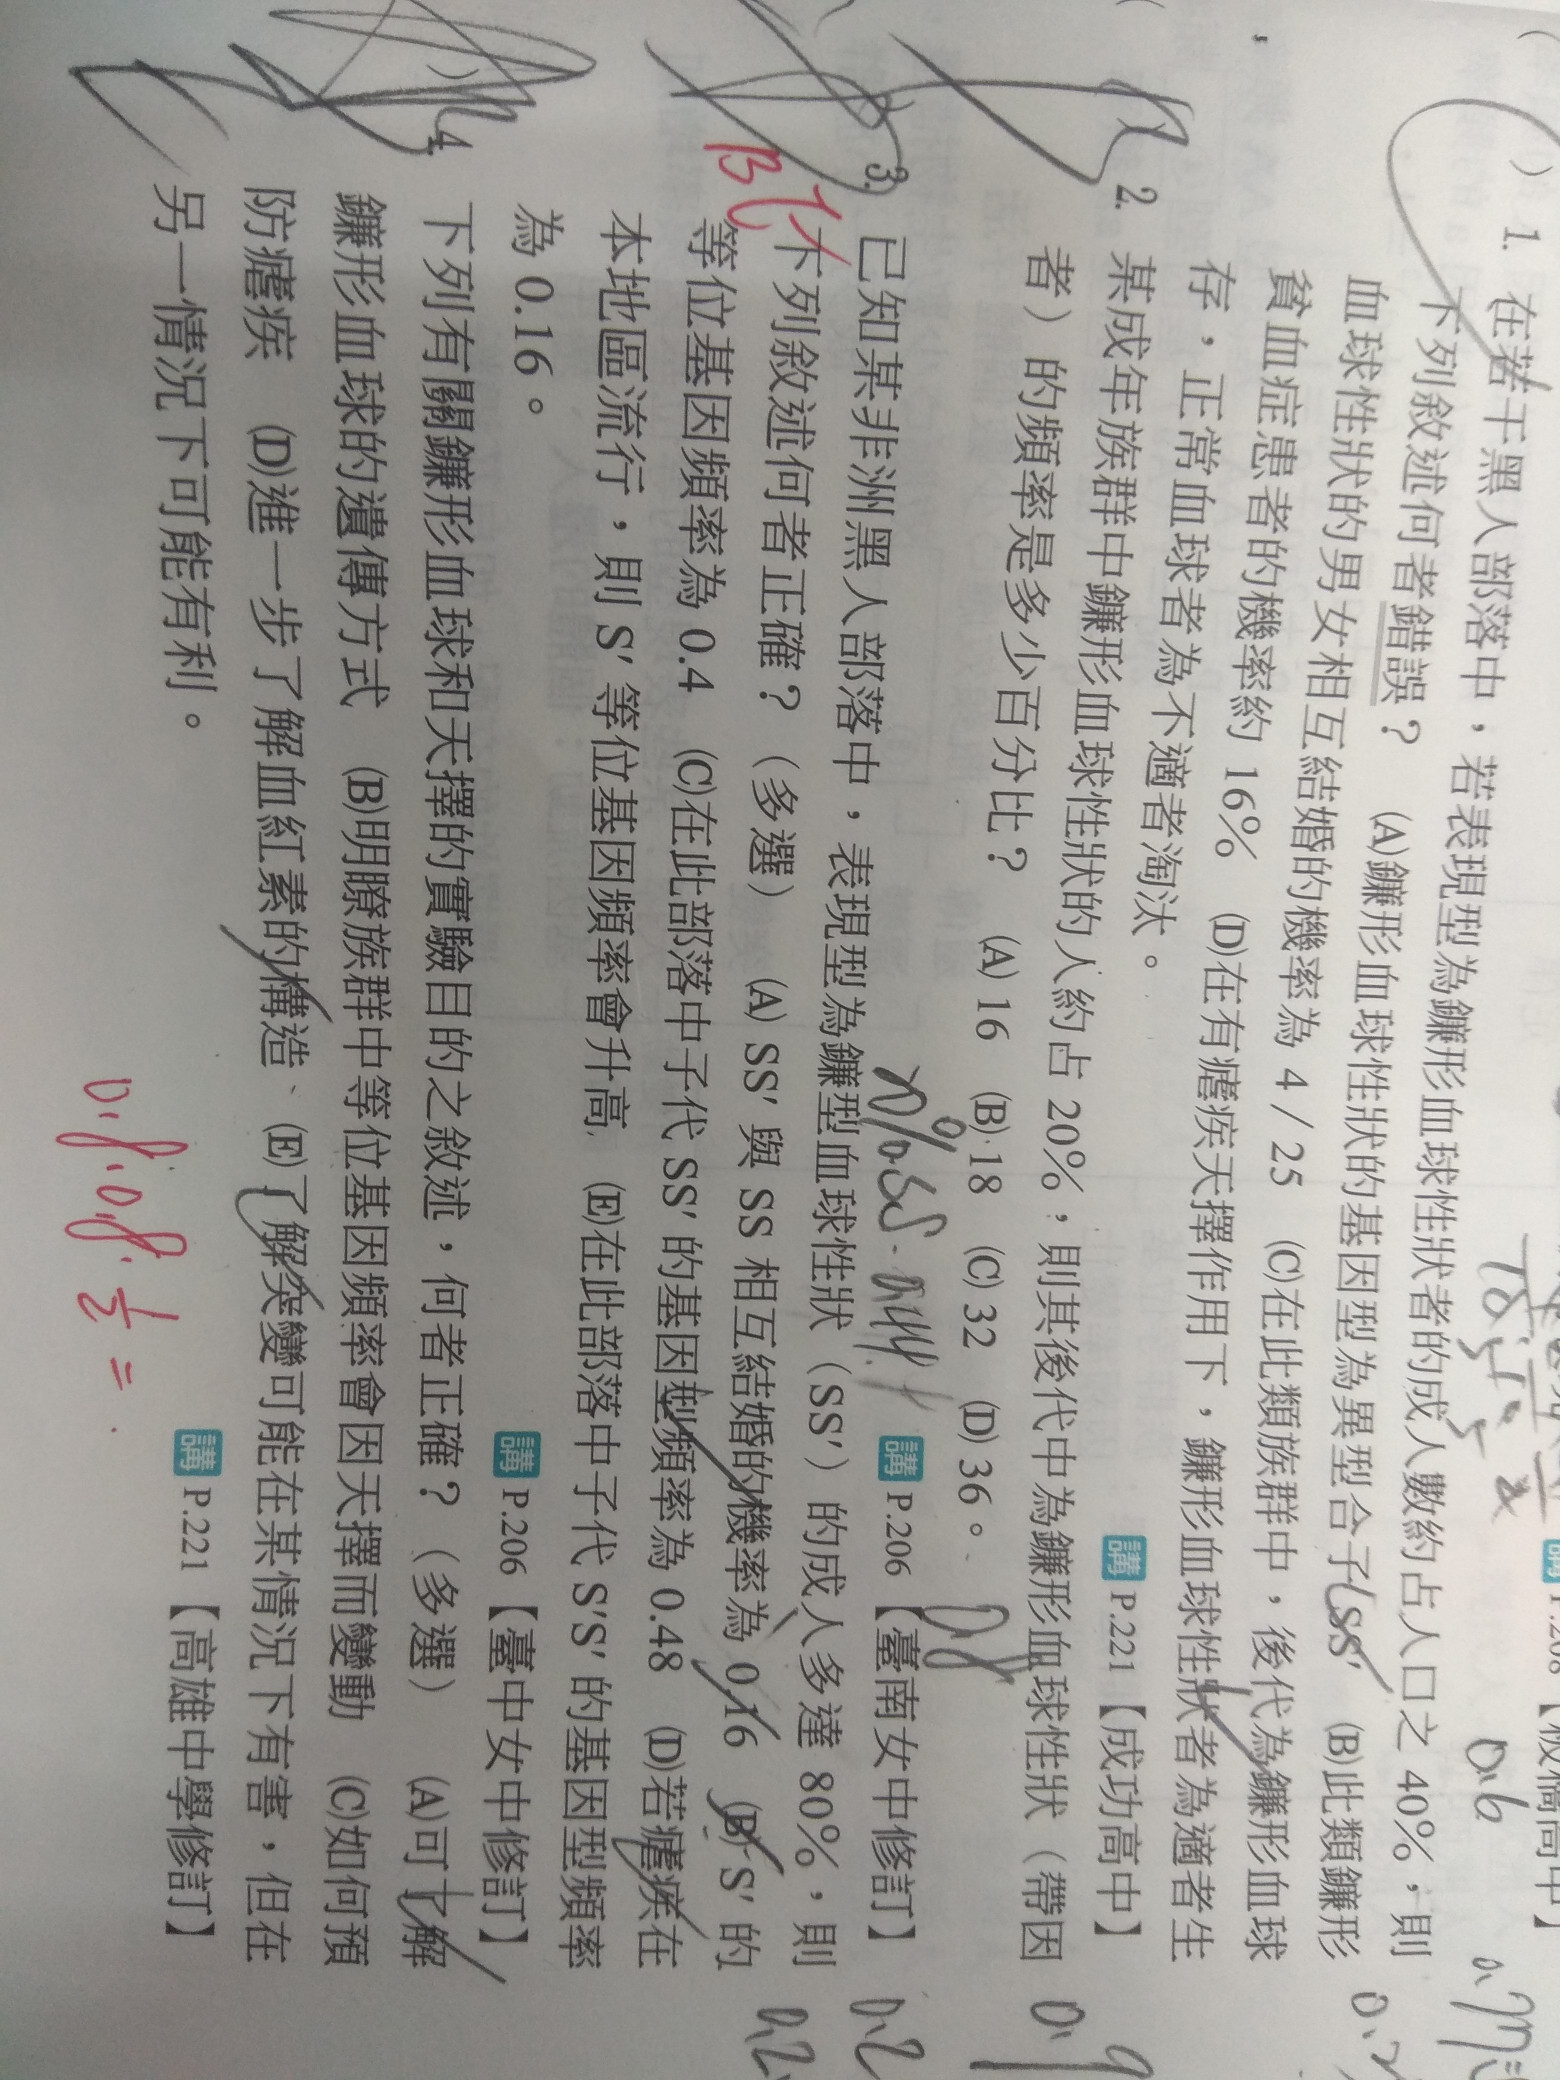 P.208【板橋高中】
1. 在若干黑人部落中，若表現型為鐮形血球性狀者的成人數約占人口之 40%，則
下列敘述何者錯誤？ (A)鐮形血球性狀的基因型為異型合子(SS′ (B)此類鐮形
血球性狀的男女相互結婚的機率為 4 / 25 (C)在此類族群中，後代為鐮形血球
貧血症患者的機率約 16% (D)在有瘧疾天擇作用下，鐮形血球性狀者為適者生
存，正常血球者為不適者淘汰。
P.221【成功高中】
2. 某成年族群中鐮形血球性狀的人約占 20%，則其後代中為鐮形血球性狀（帶因
者）的頻率是多少百分比？ (A) 16 (B) 18 (C) 32 (D) 36。
講 P.206【臺南女中修訂】
3. 已知某非洲黑人部落中，表現型為鐮型血球性狀（SS′）的成人多達 80%，則
下列敘述何者正確？（多選） (A) SS′ 與 SS 相互結婚的機率為 0.16 (B) S′ 的
等位基因頻率為 0.4 (C)在此部落中子代 SS′ 的基因型頻率為 0.48 (D)若瘧疾在
本地區流行，則 S′ 等位基因頻率會升高 (E)在此部落中子代 S′S′ 的基因型頻率
為 0.16。
講 P.206【臺中女中修訂】
4. 下列有關鐮形血球和天擇的實驗目的之敘述，何者正確？（多選） (A)可了解
鐮形血球的遺傳方式 (B)明瞭族群中等位基因頻率會因天擇而變動 (C)如何預
防瘧疾 (D)進一步了解血紅素的構造 (E)了解突變可能在某情況下有害，但在
另一情況下可能有利。
講 P.221【高雄中學修訂】
0.6
0.9
0.2
0.2
0.8·0.8·½ =